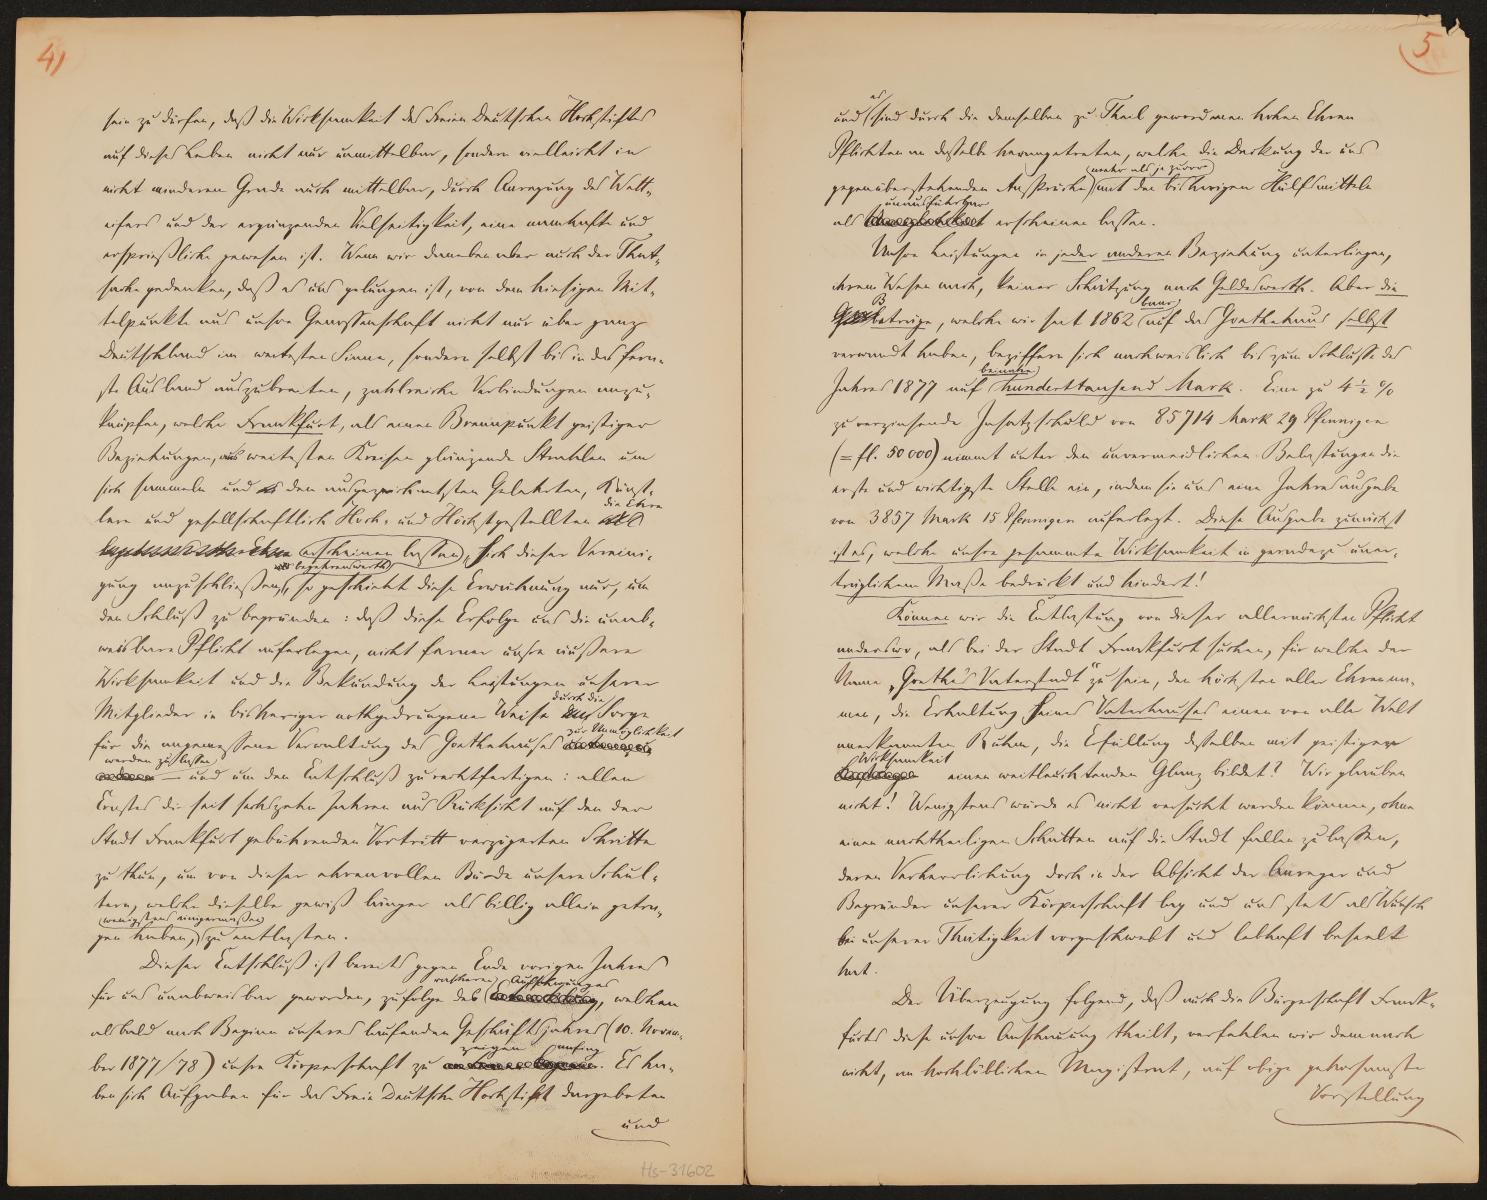 4)
sein zu dürfen, daß die Wirksamkeit des Freien Deutschen Hochstiftes
auf dieses Leben nicht nur unmittelbar, sondern vielleicht in
nicht minderem Grade auch mittelbar, durch Anregung des Wett-
eifers und der ergänzenden Vielseitigkeit, eine namhafte und
ersprießliche gewesen ist. Wenn wir daneben aber auch der That-
sache gedenken, daß es uns gelungen ist, von dem hiesigen Mit-
telpunkte aus unsre Genossenschaft nicht nur über ganz
Deutschland im weitesten Sinne, sondern selbst bis in das fern-
ste Ausland auszubreiten, zahlreiche Verbindungen anzu-
knüpfen, welche Frankfurt, als einen Brennpunkt geistiger
Beziehungen, aus weitesten Kreisen glänzende Strahlen um
sich sammeln und den ausgezeichnetsten Gelehrten, Künst-
die Ehre
lern und gesellschaftlich Hoch- und Höchstgestellten
erscheinen lassen, sich dieser Vereini-
begehrenswerth
gung anzuschließen, so geschieht diese Erwähnung nur, um
den Schluß zu begründen: daß diese Erfolge uns die unab-
weisbare Pflicht auferlegen, nicht ferner unsre äußere
Wirksamkeit und die Bekundung der Leistungen unserer
durch die
Mitglieder in bisheriger nothgedrungener Weise Sorge
zur Unmöglichkeit
für die angemessene Verwaltung des Goethehauses
werden zu lassen
und um den Entschluß zu rechtfertigen: allen
Ernstes die seit sechszehn Jahren aus Rücksicht auf den der
Stadt Frankfurt gebührenden Vortritt verzögerten Schritte
zu thun, um von dieser ehrenvollen Bürde unsere Schul-
tern, welche dieselbe gewiß länger als billig allein getra-
(wenigstens einigermaßen)
gen haben, zu entlasten.
Dieser Entschluß ist bereits gegen Ende vorigen Jahres
rascheren Aufschwunges
für uns unabweisbar geworden, zufolge des , welchen
alsbald nach Beginn unseres laufenden Geschäftsjahres (10. Novem-
zeigen anfing
ber 1877/78) unsre Körperschaft zu . Es ha-
ben sich Aufgaben für das Freie Deutsche Hochstift dargeboten
und
Hs-31602
5
es
und sind durch die demselben zu Theil gewordenen hohen Ehren
Pflichten an dasselbe herangetreten, welche die Deckung der uns
(mehr als je zuvor)
gegenüberstehenden Ansprüche mit den bisherigen Hülfsmitteln
unausführbar
als erscheinen lassen.
Unsre Leistungen in jeder anderen Beziehung unterliegen,
ihrem Wesen nach, keiner Schätzung nach Geldeswerth. Aber die
B baar
beträge, welche wir seit 1862 auf das Goethehaus selbst
verwandt haben, beziffern sich nachweislich bis zum Schlusse des
beinahe
Jahres 1877 auf hunderttausend Mark. Eine zu 4 ½ %
zu verzinsende Insatzschuld von 85714 Mark 29 Pfennigen
(= fl. 50 000) nimmt unter den unvermeidlichen Belastungen die
erste und wichtigste Stelle ein, indem sie uns eine Jahresausgabe
von 3857 Mark 15 Pfennigen auferlegt. Diese Ausgabe zunächst
ist es, welche unsre gesammte Wirksamkeit in geradezu uner-
träglichem Maße bedrückt und hindert!
Können wir die Entlastung von dieser allernächsten Pflicht
anderswo, als bei der Stadt Frankfurt suchen, für welche der
Name „Goethe's Vaterstadt“ zu sein, den höchsten aller Ehrenna-
men, die Erhaltung seines Vaterhauses einen von aller Welt
anerkannten Ruhm, die Erfüllung desselben mit geistiger
Wirksamkeit
einen weitleuchtenden Glanz bildet? Wir glauben
nicht! Wenigstens würde es nicht versucht werden können, ohne
einen nachtheiligen Schatten auf die Stadt fallen zu lassen,
deren Verherrlichung doch in der Absicht der Anreger und
Begründer unserer Körperschaft lag und uns stets als Wunsch
bei unserer Thätigkeit vorgeschwebt und lebhaft beseelt
hat.
Der Überzeugung folgend, daß auch die Bürgerschaft Frank-
furts diese unsre Anschauung theilt, verfehlen wir demnach
nicht, an hochlöblichen Magistrat, auf obige gehorsamste
Vorstellung